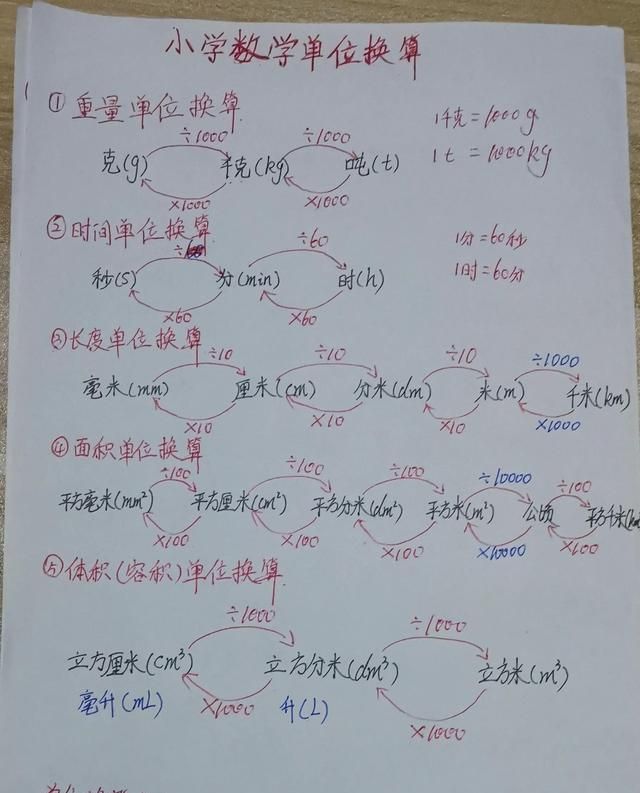 小学数学单位换算
①重量单位换算
÷1000 ÷1000
克(g) 千克(kg) 吨(t)
×1000 ×1000
1千克=1000g
1t=1000kg
②时间单位换算
÷60 ÷60
秒(s) 分(min) 时(h)
×60 ×60
1分=60秒
1时=60分
③长度单位换算
÷10 ÷10 ÷10 ÷1000
毫米(mm) 厘米(cm) 分米(dm) 米(m) 千米(km)
×10 ×10 ×10 ×1000
④面积单位换算
÷100 ÷100 ÷100 ÷10000 ÷100
平方毫米(mm²) 平方厘米(cm²) 平方分米(dm²) 平方米(m²) 公顷 平方千米(km
×100 ×100 ×100 ×10000 ×100
⑤体积(容积)单位换算
÷1000 ÷1000
立方厘米(cm³) 立方分米(dm³) 立方米(m³)
毫升(mL) 升(L)
×1000 ×1000